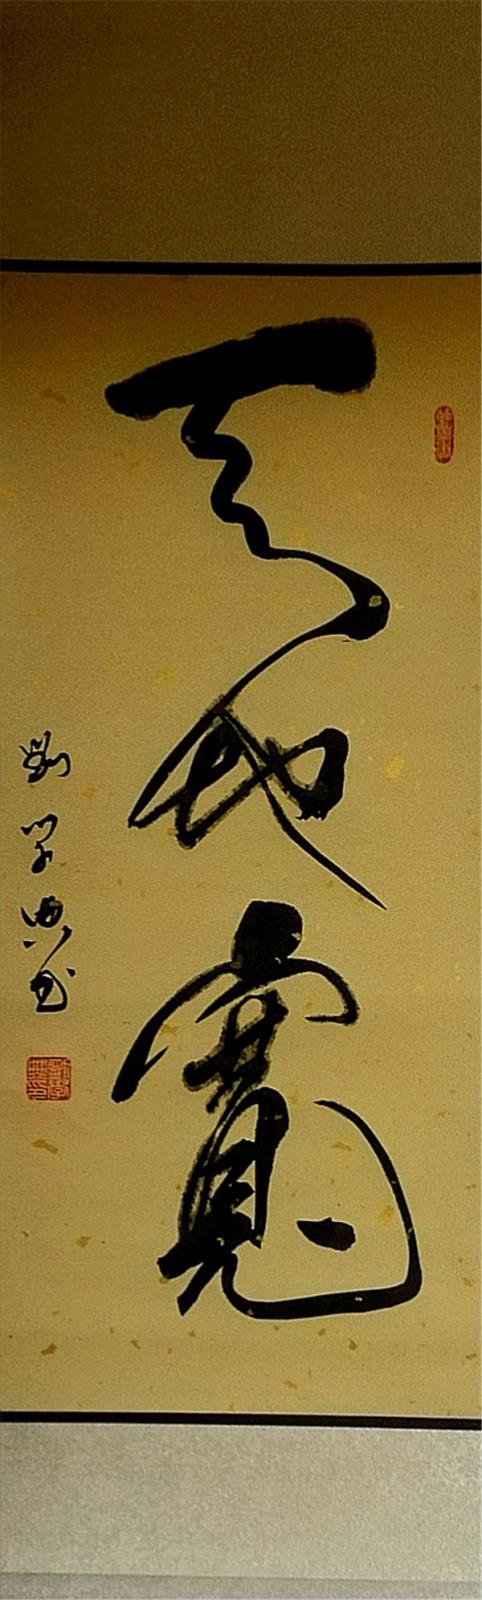 天地寬
劉學典書